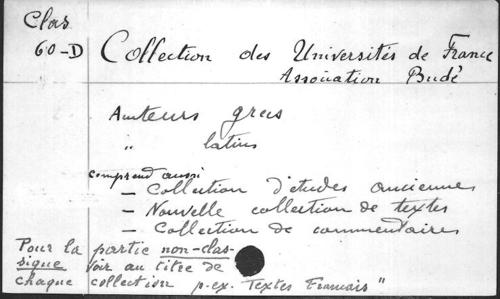 Clas
60-D
Collection des Universités de France
Association Budé
Auteurs grecs
" latins
comprend aussi
– Collection d'études anciennes
– Nouvelle collection de textes
– Collection de commentaires
Pour la partie non-clas-
sique voir au titre de
chaque collection p.ex. Textes Francais"